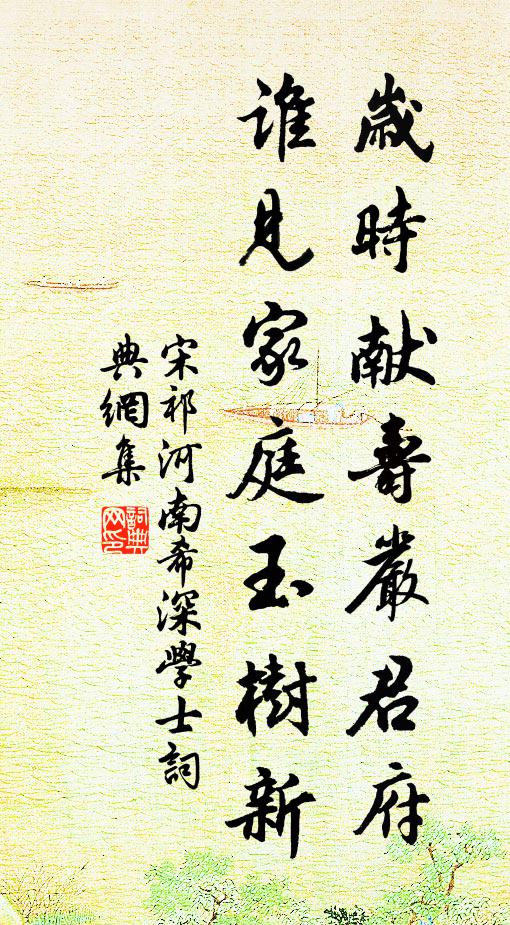 歲時献壽嚴君府
誰見家庭玉樹新
宋祁河南希深學士詞
典網集
詞典
网印